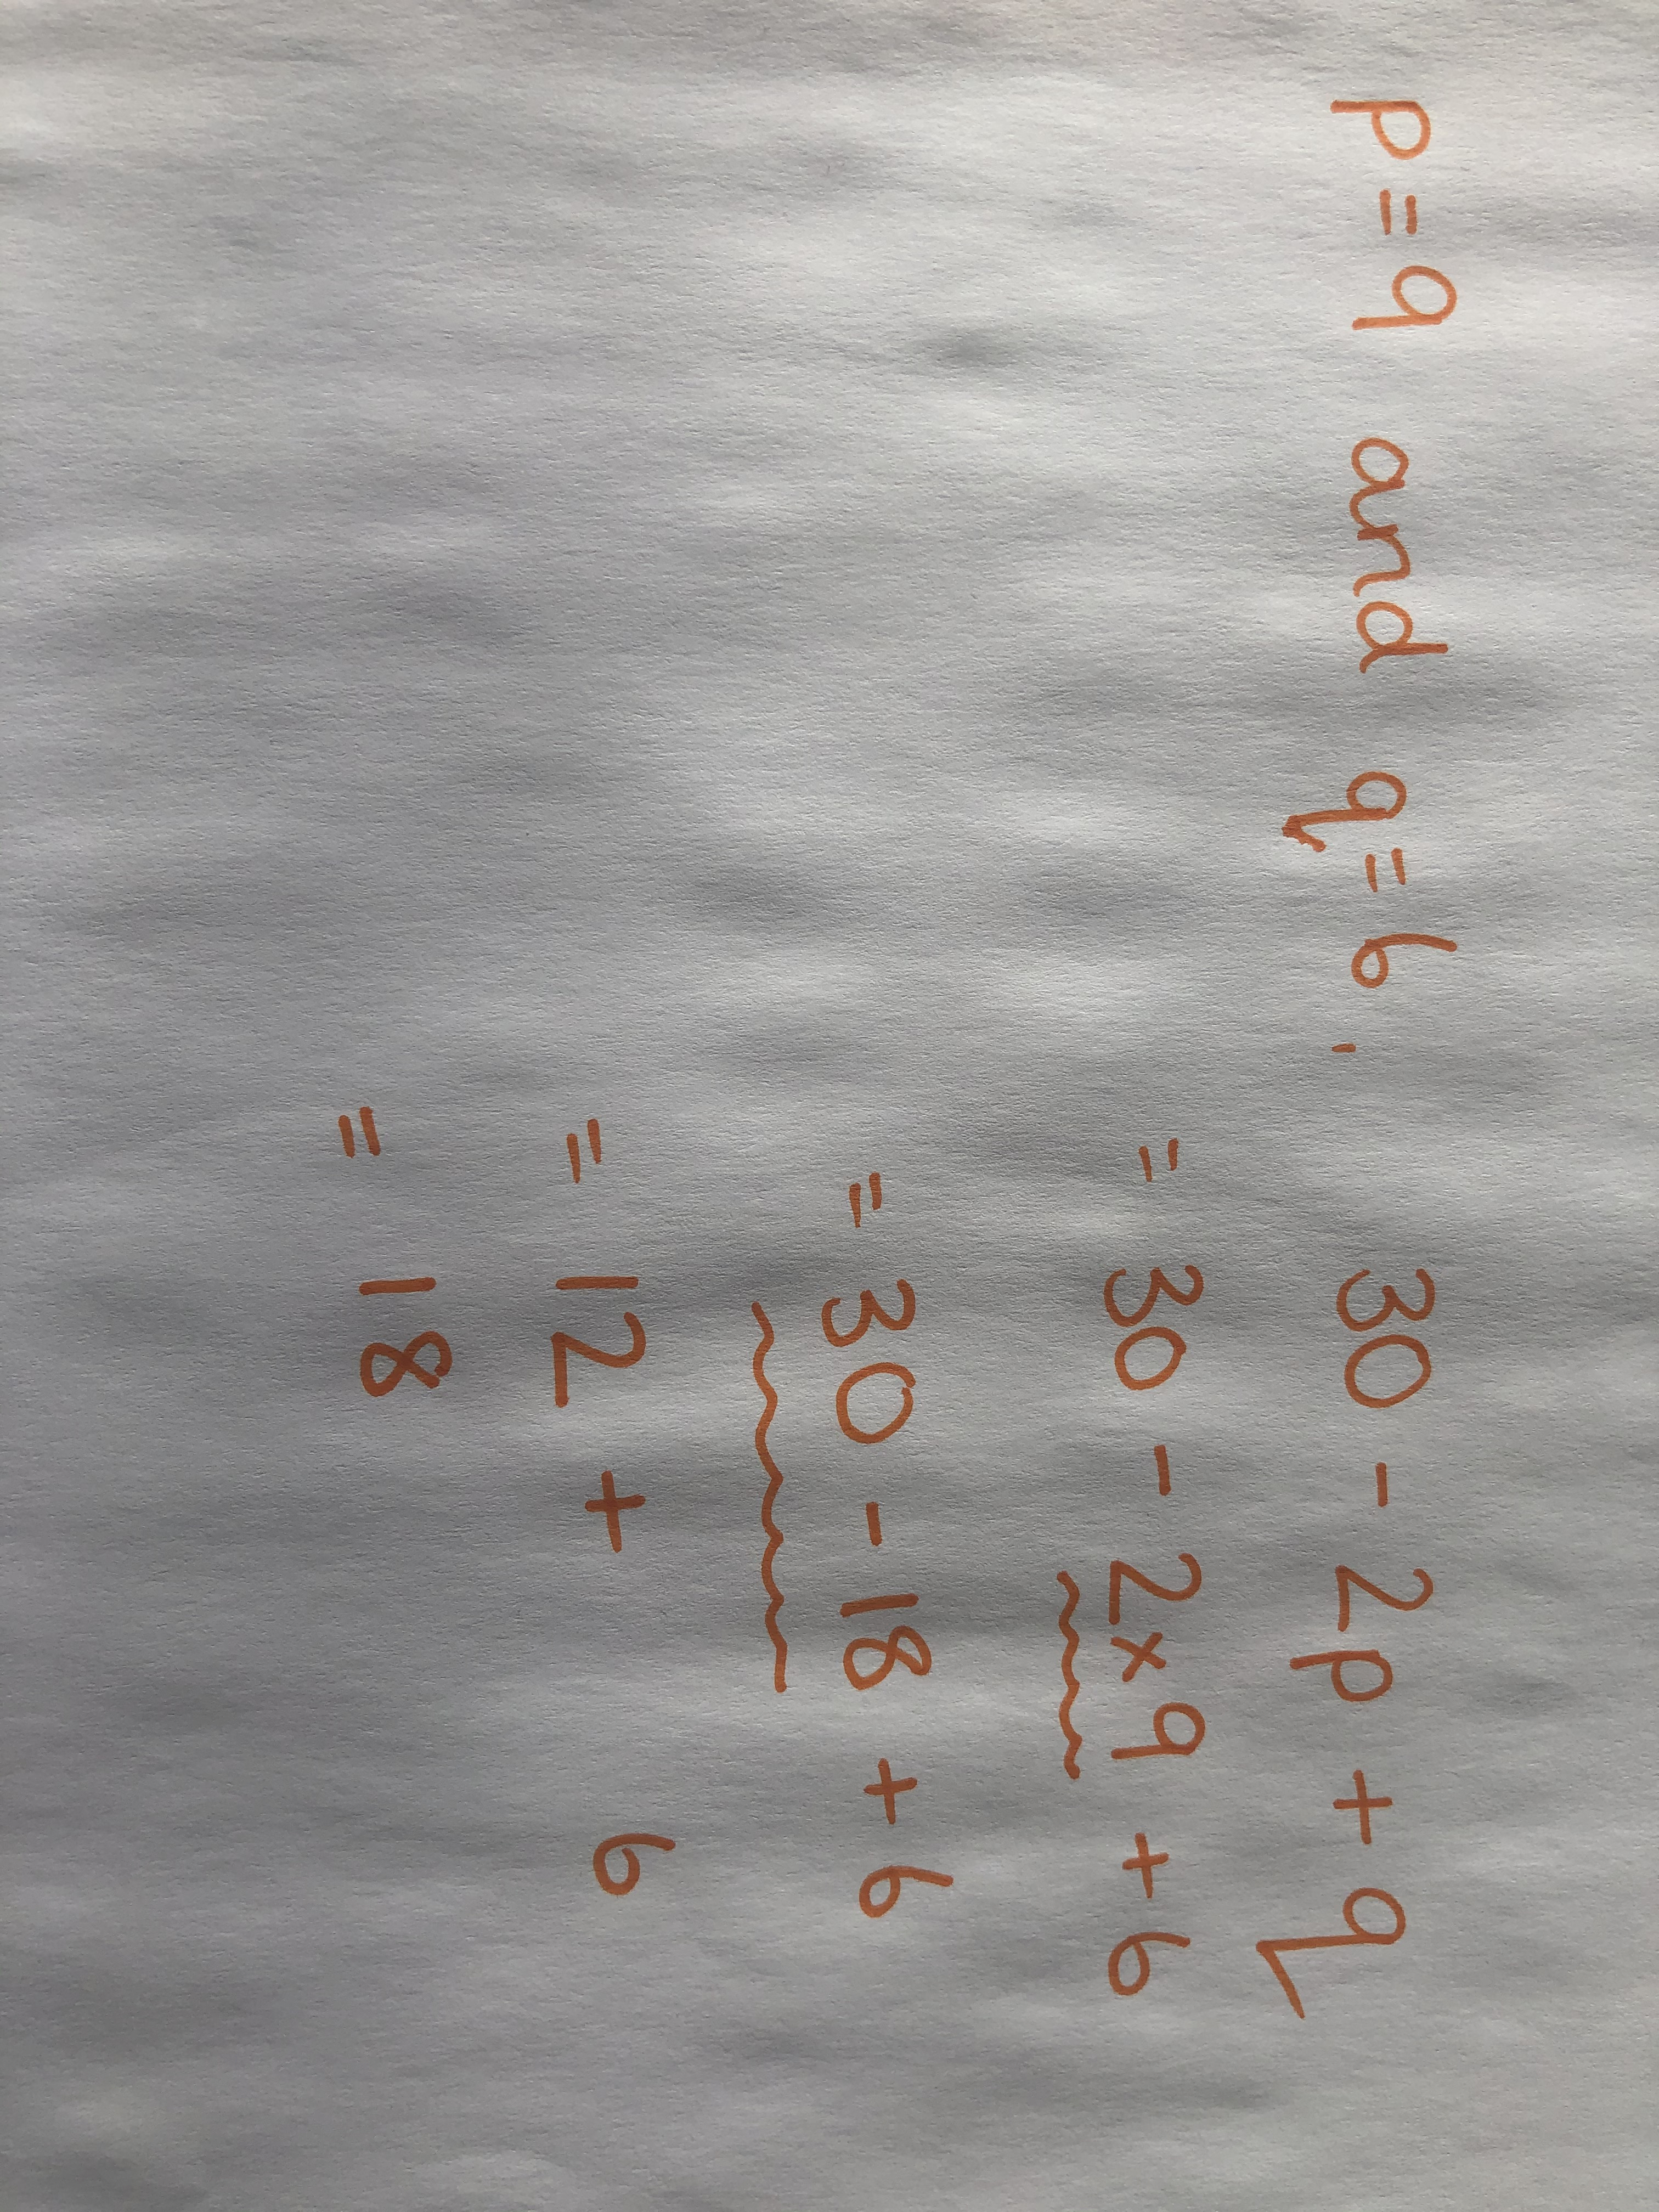 p = 9 and q = 6. 30 - 2p + q
= 30 - 2×9 + 6
= 30 - 18 + 6
= 12 + 6
= 18